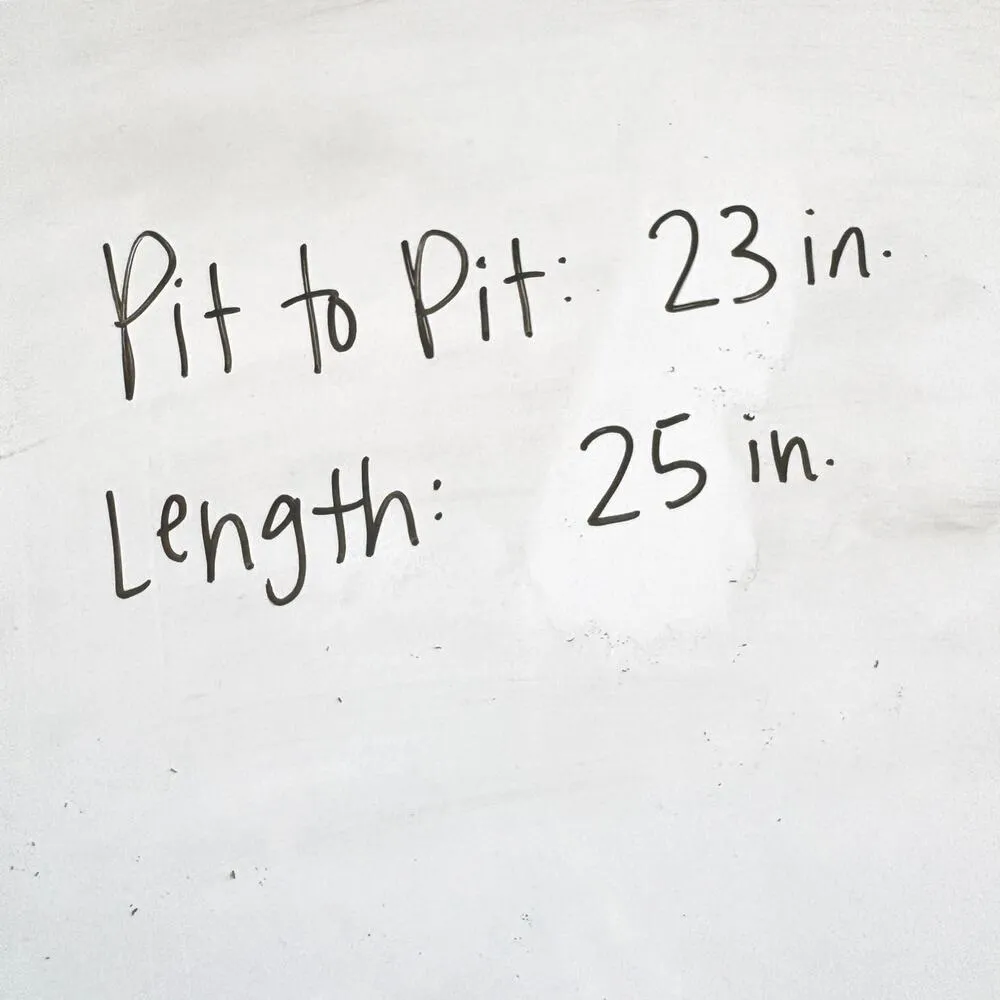 Pit to Pit: 23 in.
Length: 25 in.